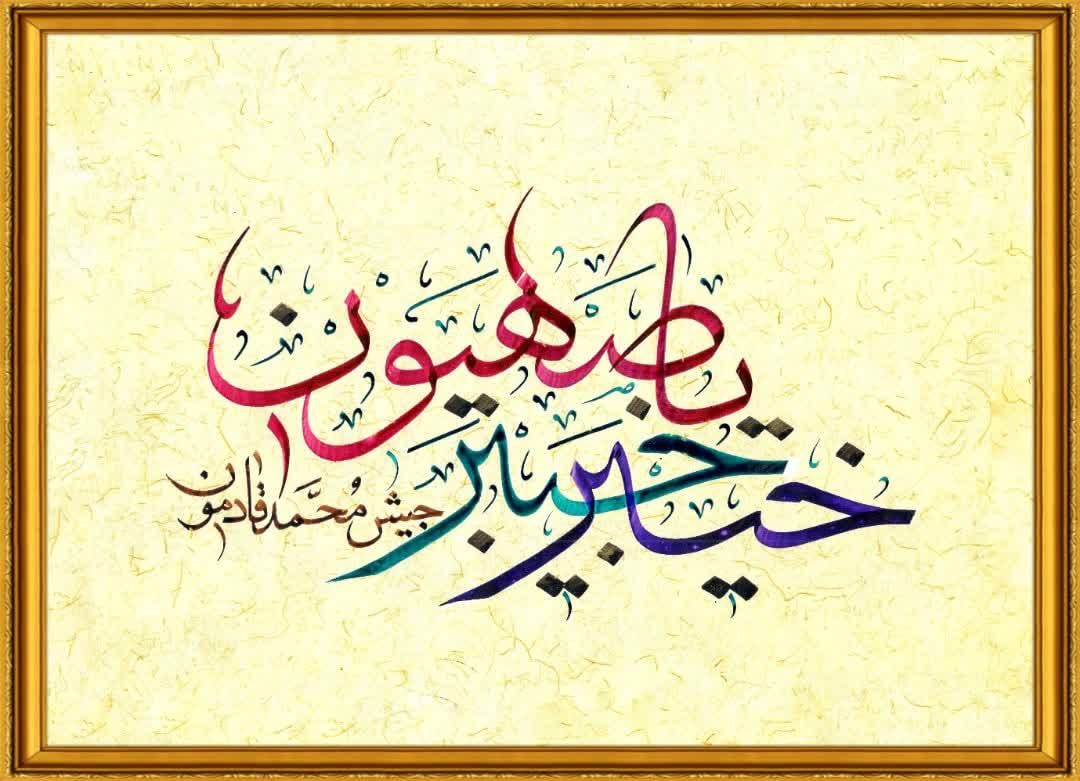 خيبر خيبر
يا صهيون
جيش مُحمَّد قادمون